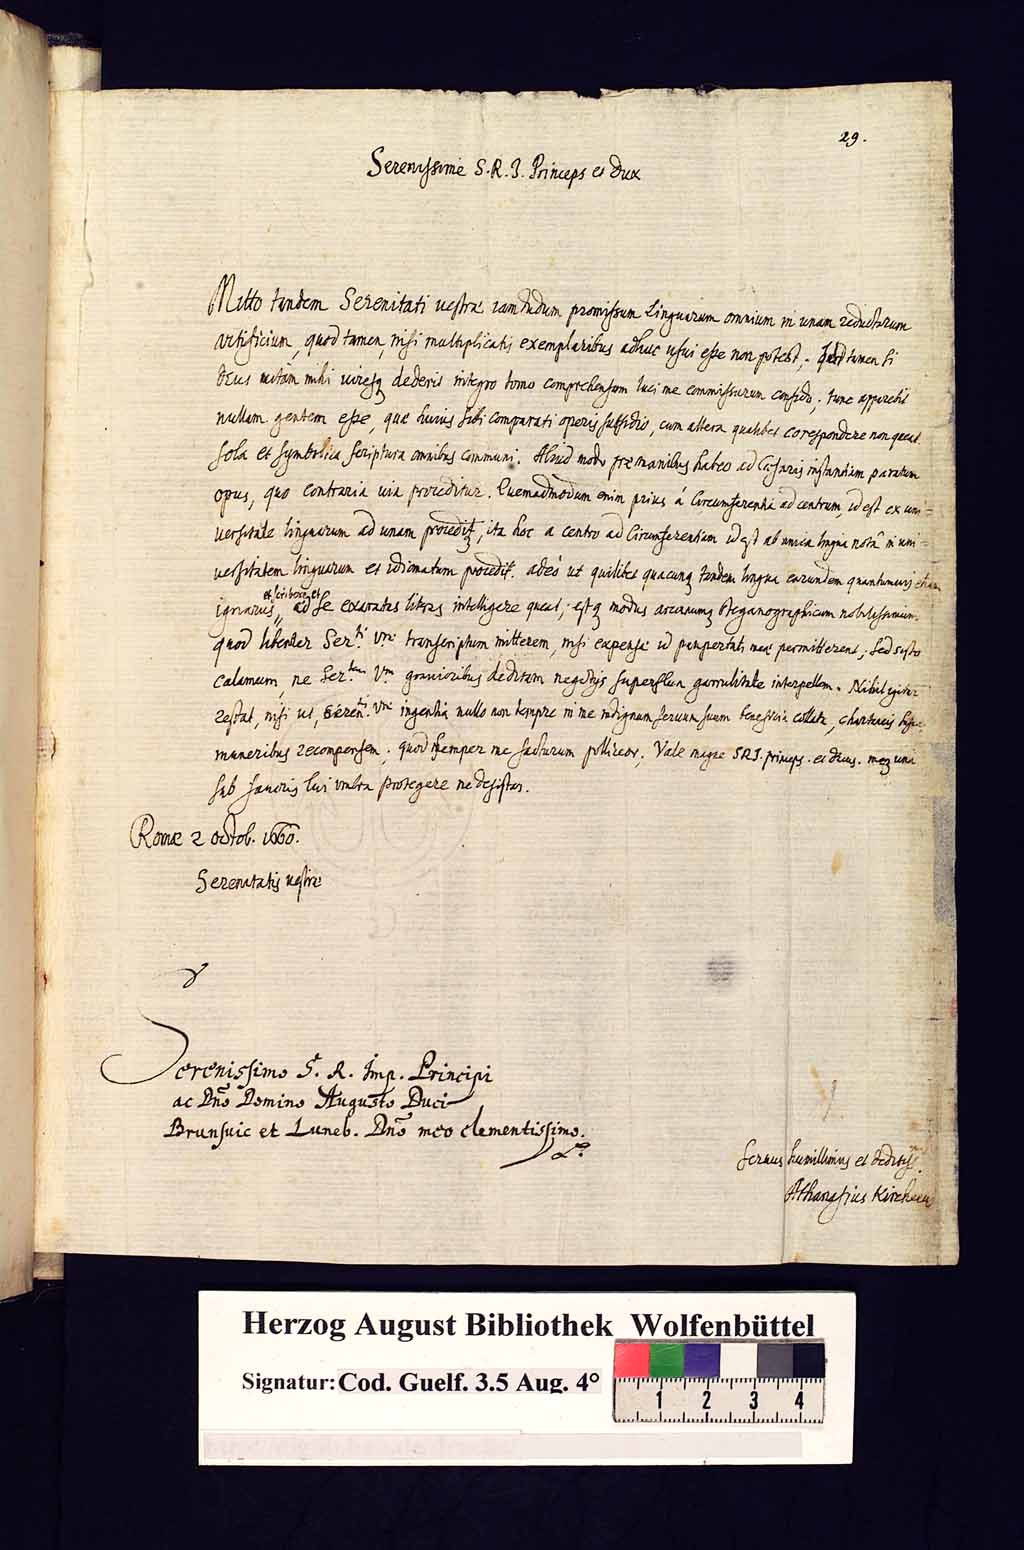 29.
Serenissime S. R. I. Princeps et Dux
Mitto tandem Serenitati uestræ iamdudum promissum Linguarum omnium in unam reductarum
artificium, quod tamen, nisi multiplicatis exemplaribus adhuc usui esse non potest; tamen si
Deus uitam mihi uiresq dederit integro tomo comprehensum luci me commissurum confido; tunc apparebit
nullam gentem esse, que huius sibi comparati operis subsidio, cum altera qualibet correspondere non queat
sola et symbolica scriptura omnibus communi. Aliud modo præ manibus habeo ad Cæsaris instantiam paratum
opus, quo contraria uia proceditur. Quemadmodum enim prius á Circumferentia ad centrum, id est ex uni=
uersitate linguarum ad unam procedit, ita hoc a centro ad Circumferentiam id est ab unica lingua nota in uni=
uersitatem linguarum et idiomatum procedit. adeo ut quilibet quacunq tandem lingua earundem quantumuis etiam
et scribere, et
ignarus, ad se exaratas litteras intelligere queat; estq modus arcanumq steganographicum nobilissimum.
quod libenter Ser.ti Vræ transcriptum mitterem, nisi expensæ id paupertati meæ permitterent; sed sisto
calamum, ne Ser.tem Vram grauioribus deditam negotijs superflua garrulitate interpellem. Nihil igitur
restat, nisi ut, Seren.tis Vræ ingentia nullo non tempore in me indignum seruum suum beneficia collata, chartaceis hisce
muneribus recompensem; quod semper me facturum polliceor. Vale magne S R I. princeps et decus. meq uni
sub fauoris tui umbra protegere ne desistas.
Romæ 2 Octob. 1660.
Serenitatis uestræ
Serenissimo S. R. Imp. Principi
ac Dño Domino Augusto Duci
Brunsuic et Luneb. Dño meo clementissimo.
seruus humillimus et deditiss.
Athanasius Kircherus
Herzog August Bibliothek Wolfenbüttel
Signatur: Cod. Guelf. 3.5 Aug. 4°
1 2 3 4
inch